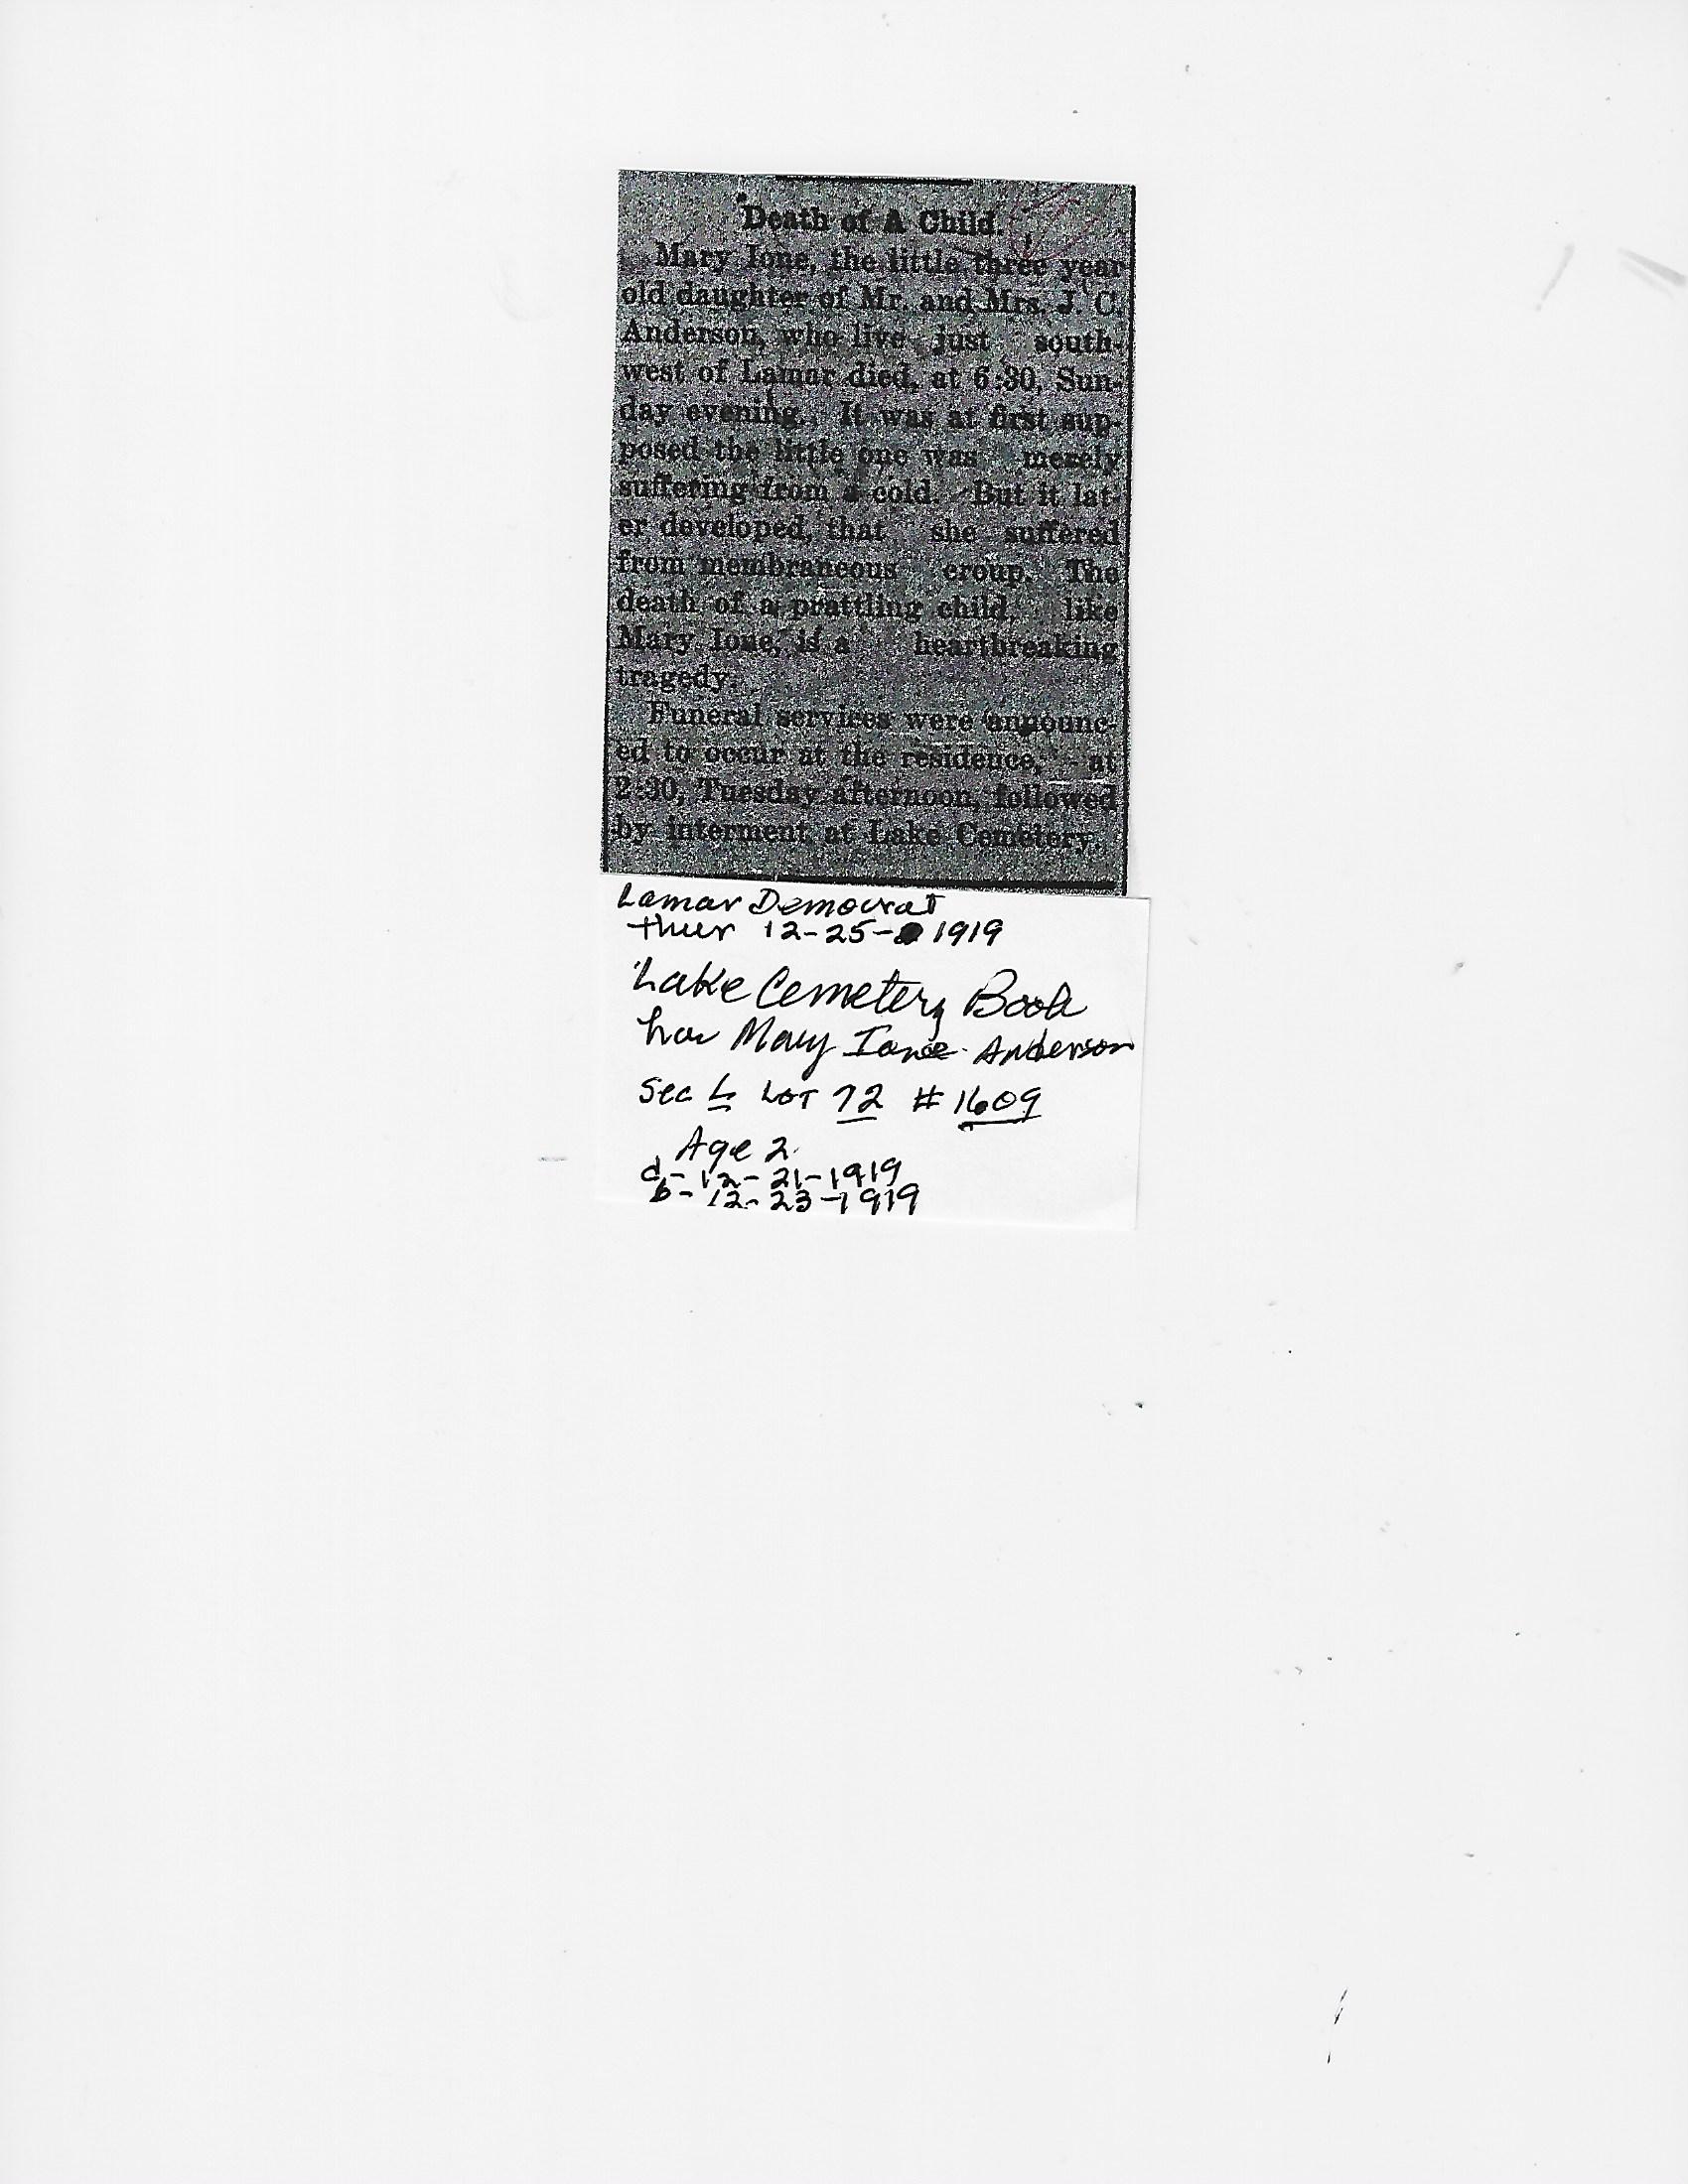 Death of A Child.
Mary Ione, the little three year
old daughter of Mr. and Mrs. J. C.
Anderson, who live just south-
west of Lamar died, at 6:30, Sun-
day evening. It was at first sup-
posed the little one was merely
suffering from a cold. But it lat-
er developed, that she suffered
from membraneous croup. The
death of a prattling child, like
Mary Ione, is a heartbreaking
tragedy.
Funeral services were announc-
ed to occur at the residence, at
2:30, Tuesday afternoon, followed
by interment at Lake Cemetery.
Lamar Democrat
thur 12-25-1919
Lake Cemetery Book
has Mary Ione Anderson
Sec L Lot 72 # 1609
Age 2
d- 12-21-1919
b- 12-23-1919